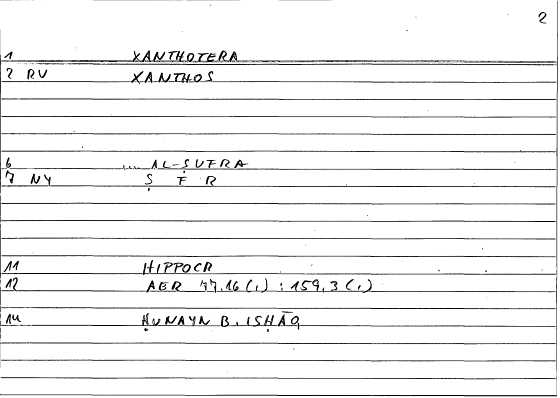 2
1 XANTHOTERA
2 RV XANTHOS
6 .... AL-ṢUFRA
7 NY Ṣ F R
11 HIPPOCR
12 AER 77.16 (1) : 159.3 (1)
14 ḤUNAYN B. ISḤĀQ